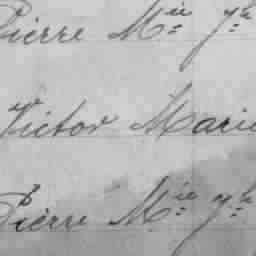 Pierre M^ie Y^h
Victor Marie
Pierre M^ie Y^h